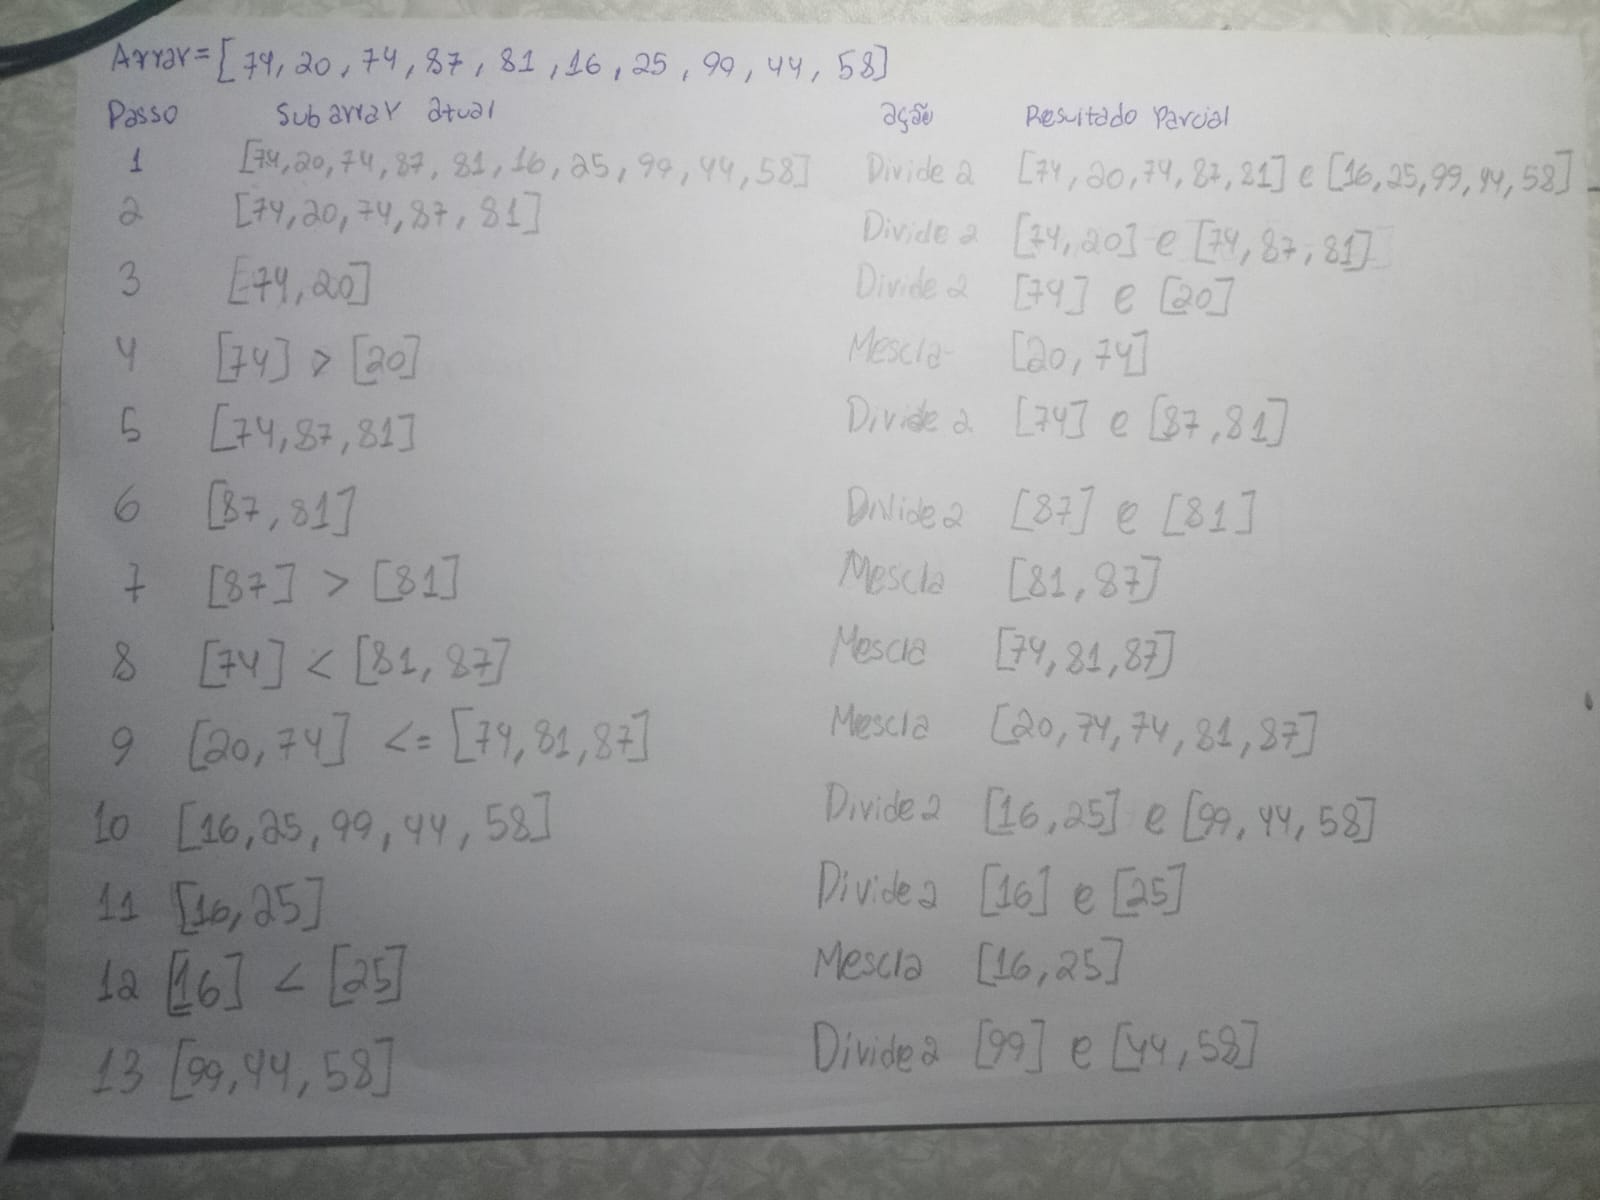 Array=[74, 20, 74, 87, 81, 16, 25, 99, 44, 58]
Passo Subarray atual ação Resultado Parcial
1 [74,20,74,87,81,16,25,99,44,58] Divide 2 [74,20,74,87,81] e [16,25,99,44,58]
2 [74,20,74,87,81] Divide 2 [74,20] e [74,87,81]
3 [74,20] Divide 2 [74] e [20]
4 [74] > [20] Mescla [20,74]
5 [74,87,81] Divide 2 [74] e [87,81]
6 [87,81] Divide 2 [87] e [81]
7 [87] > [81] Mescla [81,87]
8 [74] < [81,87] Mescla [74,81,87]
9 [20,74] <= [74,81,87] Mescla [20,74,74,81,87]
10 [16,25,99,44,58] Divide 2 [16,25] e [99,44,58]
11 [16,25] Divide 2 [16] e [25]
12 [16] < [25] Mescla [16,25]
13 [99,44,58] Divide 2 [99] e [44,58]